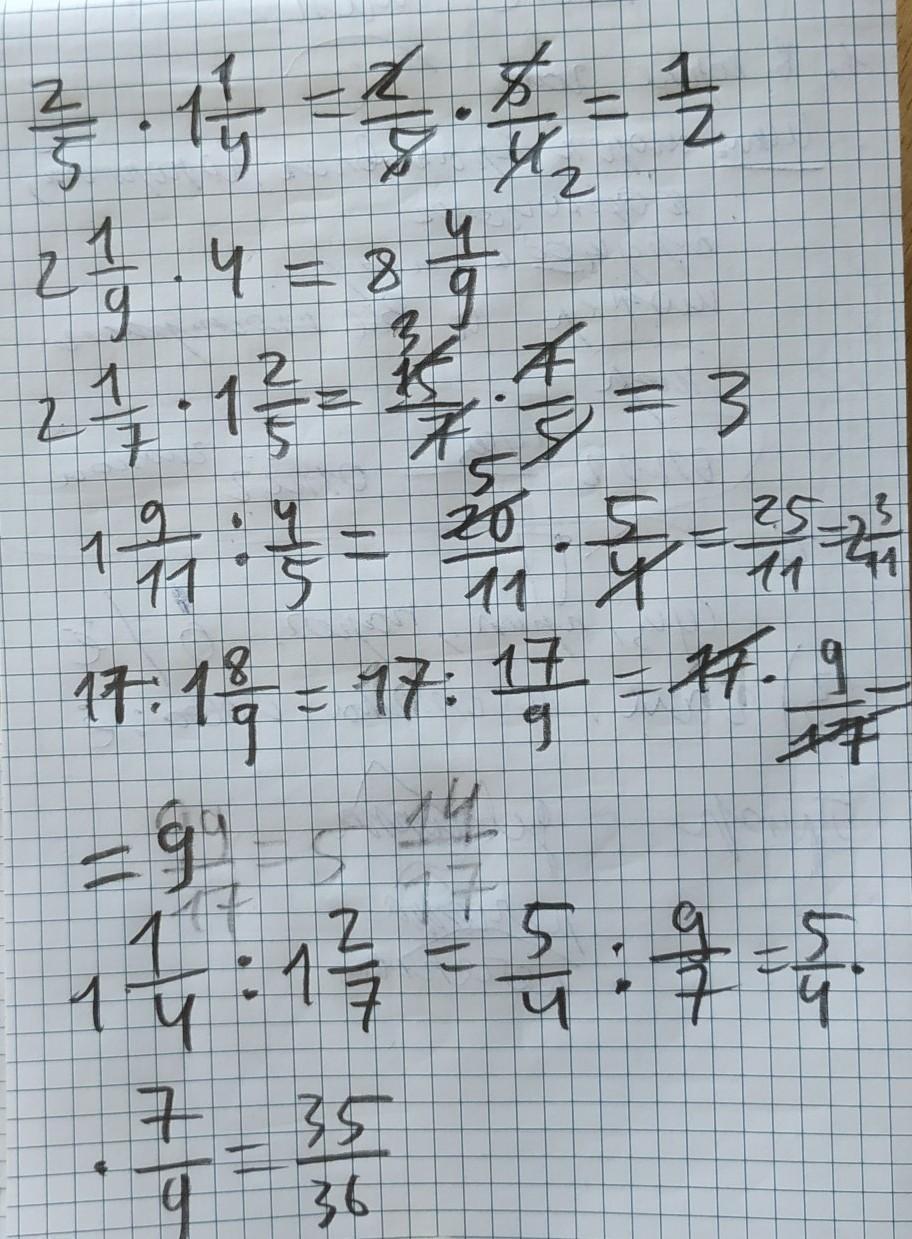 2/5 · 1 1/4 = 2/5 · 5/4 2 = 1/2
2 1/9 · 4 = 8 4/9
2 1/7 · 1 2/5 = 3 15/7 · 7/5 = 3
1 9/11 : 4/5 = 5 20/11 · 5/4 = 25/11 = 2 3/11
17 : 1 8/9 = 17 : 17/9 = 17 · 9/17 =
= 9
1 1/4 : 1 2/7 = 5/4 : 9/7 = 5/4 ·
· 7/9 = 35/36